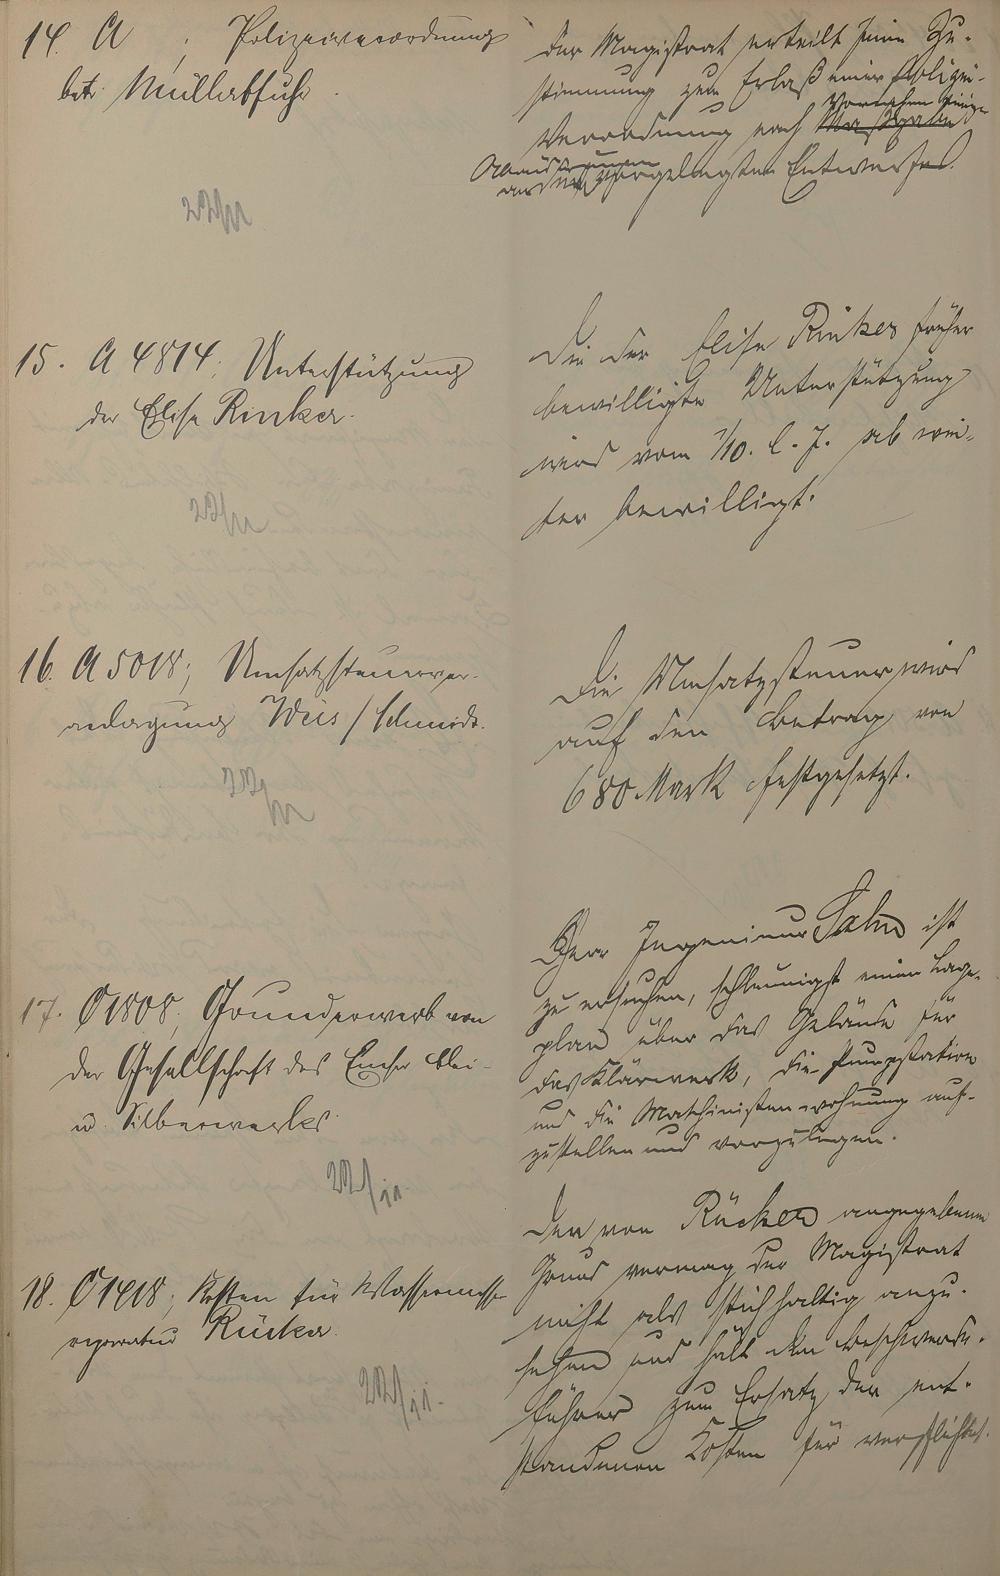 14. A ; Polizeiverordnung
betr. Müllabfuhr.
22/11
Der Magistrat erteilt seine Zu-
stimmung zum Erlaß einer Polizei-
Vornahme einiger
Verordnung nach Maßgabe
Aenderungen
des vorgelegten Entwurfes.
15. A 4814; Unterstützung
der Elise Rinker.
22/11
Die der Elise Rinker früher
bewilligte Unterstützung
wird vom 1/10. l. J. ab wei-
ter bewilligt.
16. A 5018; Umsatzsteuerver-
anlagung Weis / Schmidt.
22/11
Die Umsatzsteuer wird
auf den Betrag von
680 Mark festgesetzt.
17. C 1808; Grunderwerb von
der Gesellschaft des Emser Blei-
u. Silberwerks.
22/11.
Herr Ingenieur Sahm ist
zu ersuchen, schleunigst einen Lage-
plan über das Gelände für
das Klärwerk, die Pumpstation
und die Maschinistenwohnung auf-
zustellen und vorzulegen.
18. C 1418; Kosten für Wassermesser
reparatur Rücker.
22/11.
Den von Rücker angegebenen
Grund vermag der Magistrat
nicht als stichhaltig anzu-
sehen und hält den Beschwerde-
führer zum Ersatz der ent-
standenen Kosten für verpflichtet.